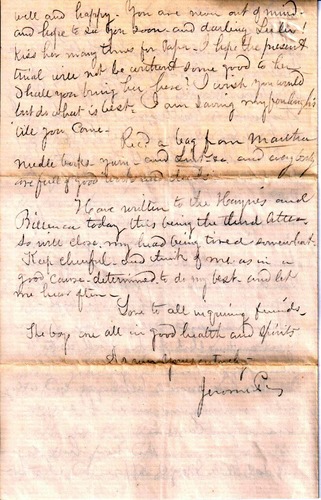 well and happy. You are never out of mind.
and hope to see you soon. and darling
kiss her many times for Papa. I hope the present
trial will not be without some good to her
you bring her here? I wish you would
but do what is best. I am saving my
till you come.
Rec'd a bag from Martha
needle books - yarn - and and
are full of good
Have written to the and
today this being the third letter.
So will close, my head being tired somewhat.
Keep cheerful. and think of me as in a
good cause - determined to do my best - and let
me hear often -
Love to all inquiring friends.
The boys are all in good health and spirits

Jerome